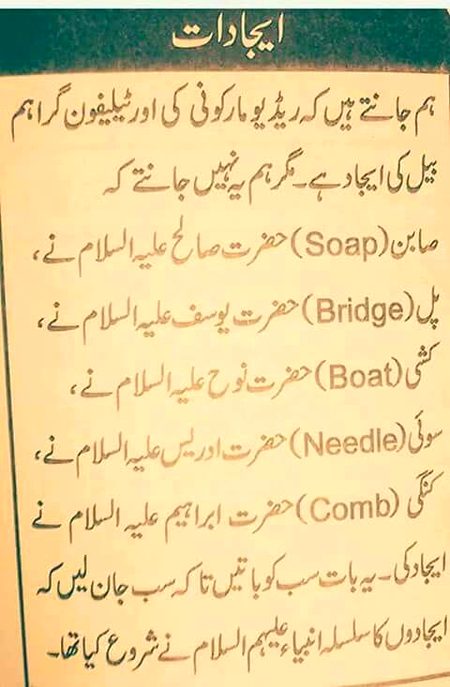 ایجادات
ہم جانتے ہیں کہ ریڈیو مارکونی کی اور ٹیلیفون گراہم
بیل کی ایجاد ہے۔ مگر ہم یہ نہیں جانتے کہ
صابن (Soap) حضرت صالح علیہ السلام نے،
پل (Bridge) حضرت یوسف علیہ السلام نے،
کشتی (Boat) حضرت نوح علیہ السلام نے،
سوئی (Needle) حضرت ادریس علیہ السلام نے،
کنگی (Comb) حضرت ابراہیم علیہ السلام نے
ایجاد کی۔ یہ بات سب کو باتیں تاکہ سب جان لیں کہ
ایجادوں کا سلسلہ انبیاء علیہم السلام نے شروع کیا تھا۔